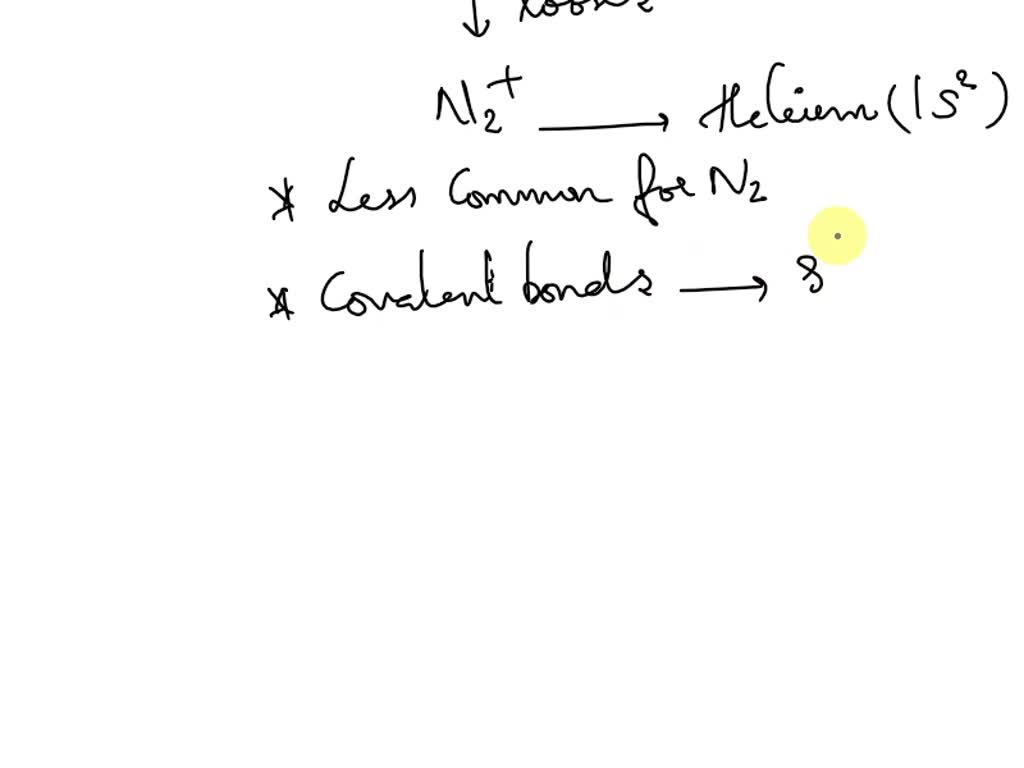 ↓
N₂⁺ → Heleium (1s²)
* Less Common for N₂
* Covalent bonds → 8